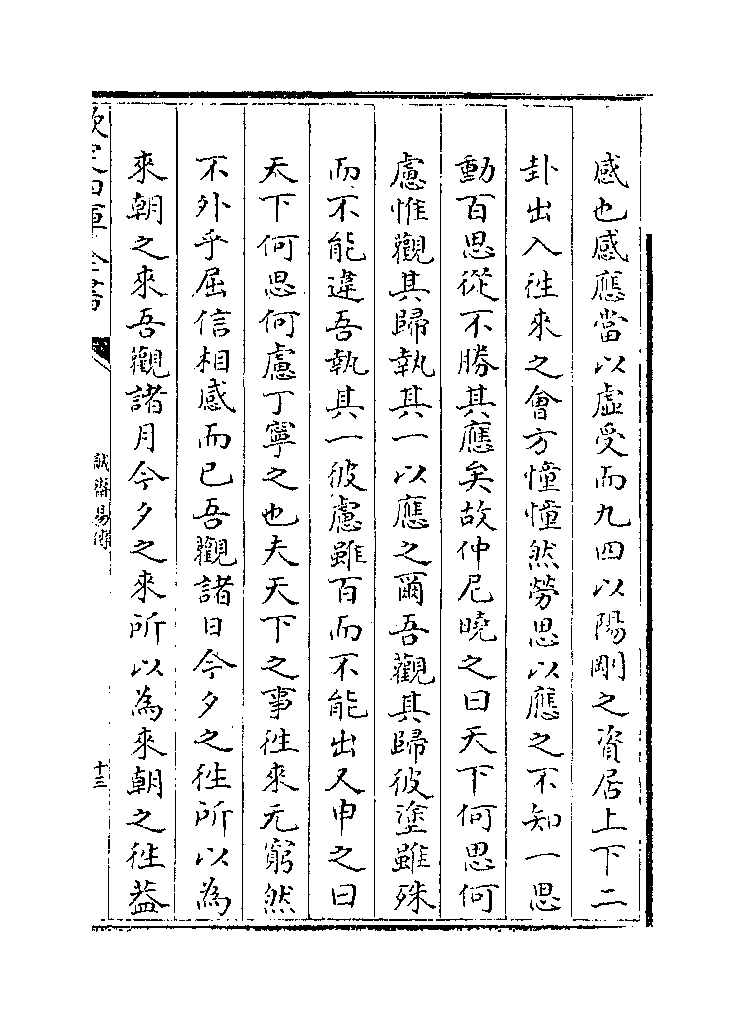 感也感應當以虛受而九四以陽剛之資居上下二
卦出入徃來之會方憧憧然勞思以應之不知一思
動百思從不勝其應矣故仲尼曉之曰天下何思何
慮惟觀其歸執其一以應之爾吾觀其歸彼塗雖殊
而不能違吾執其一彼慮雖百而不能出又申之曰
天下何思何慮丁寧之也夫天下之事徃來无窮然
不外乎屈信相感而已吾觀諸日今夕之徃所以為
來朝之來吾觀諸月今夕之來所以為來朝之徃葢
欽定四庫全書
誠齋易傳
十三